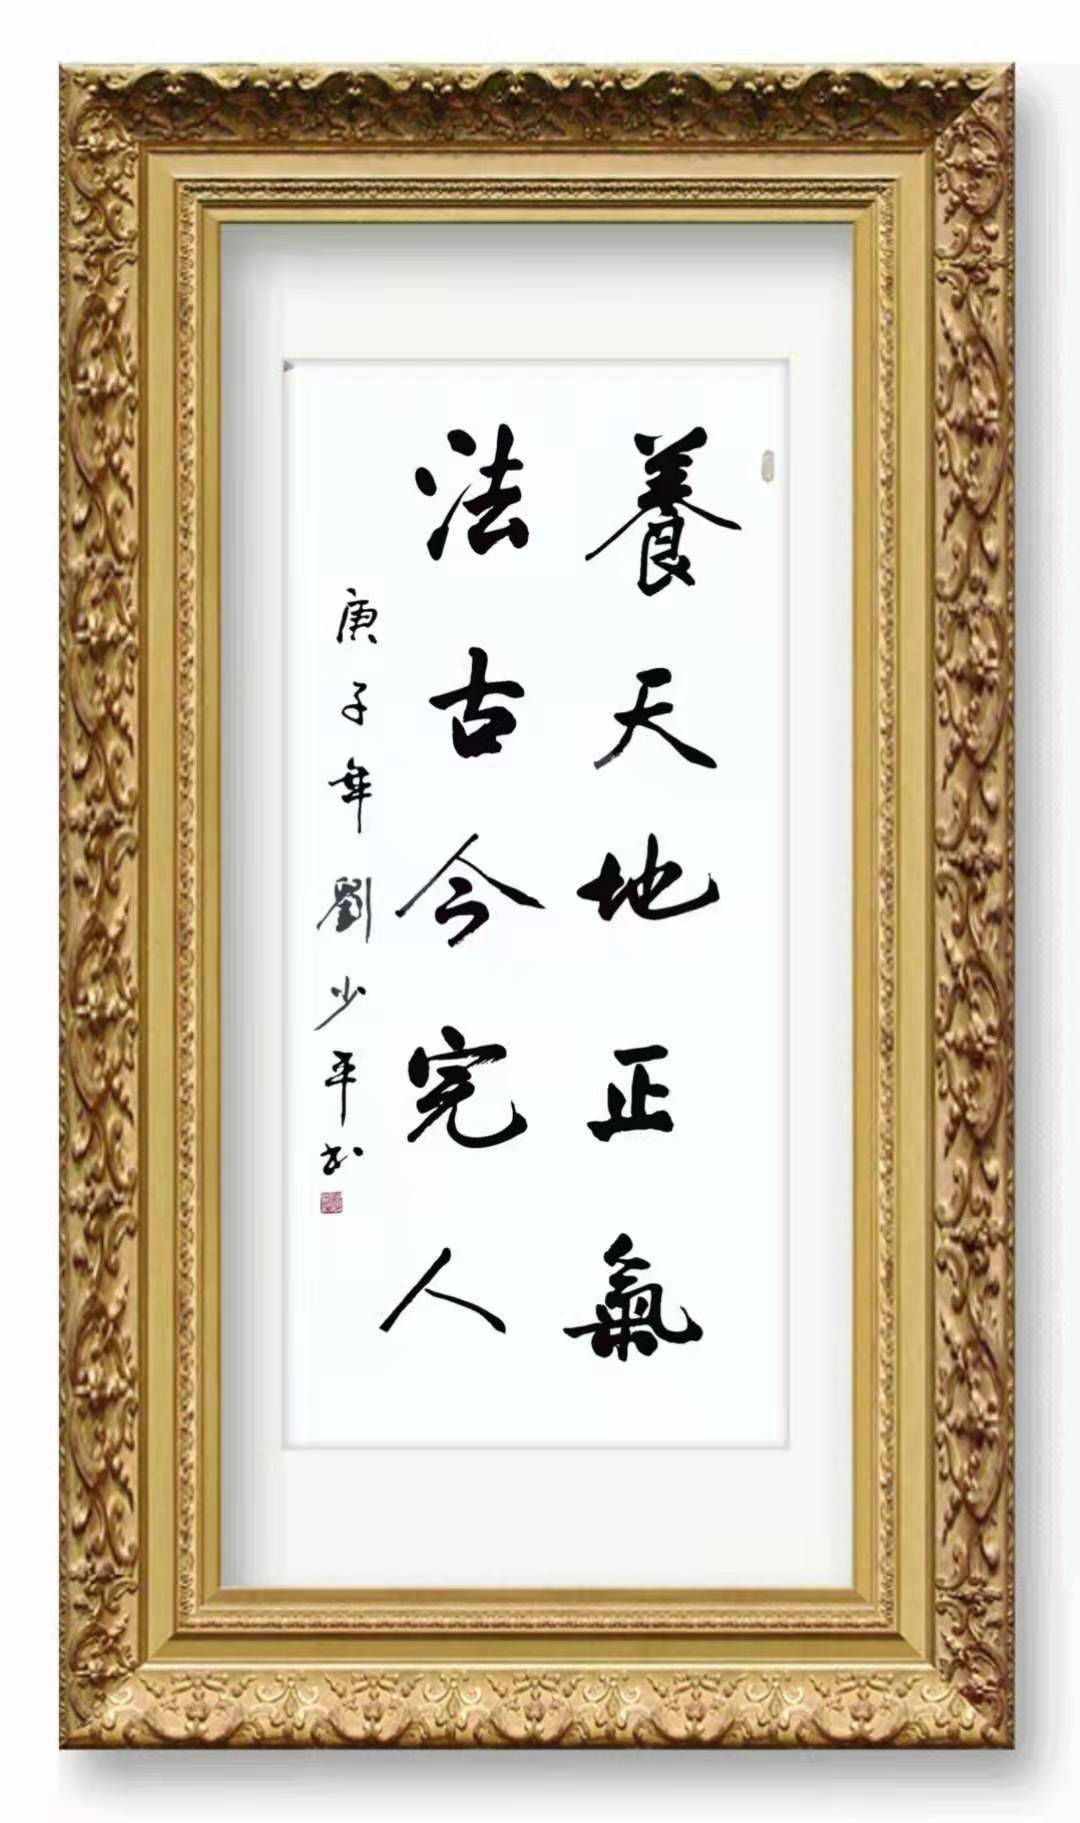 養天地正氣
法古今完人
庚子年劉少平书